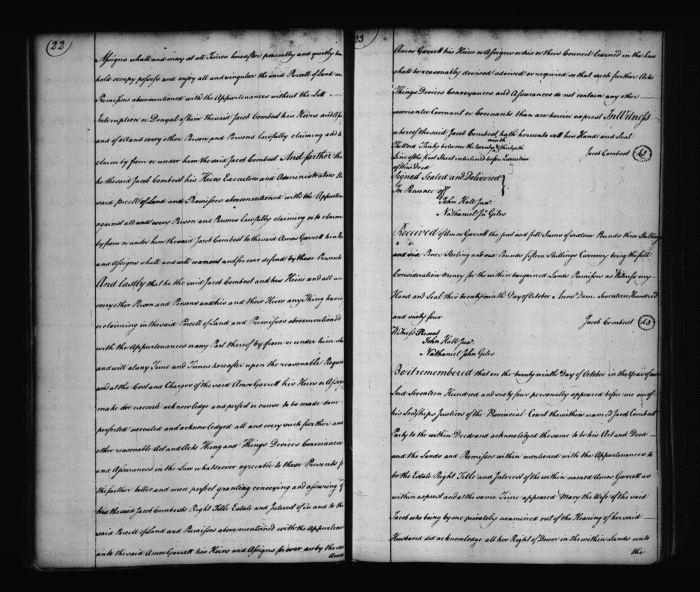 22
Assigns shall and may at all Times hereafter peaceably and quietly ha
hold occupy possess and enjoy all and singular the said Parcell of Land an
Premisses abovementioned with the Appurtenances without the Lett
Interruption or Denyal of him the said Jacob Combest his Heirs and Ass
and of all and every other Person and Persons lawfully claiming or to
claim by from or under him the said Jacob Combest And further th
he the said Jacob Combest his Heirs Executors and Administrators th
said Parcell of Land and Premisses abovementioned with the Appurten
against all and every Person and Persons lawfully claiming or to claim
by from or under him the said Jacob Combest to the said Amos Garrett his He
and Assigns shall and will warrant and forever defend by these Presents
And lastly that he the said Jacob Combest and his Heirs and all an
every other Person and Persons and his and their Heirs any Thing havin
or claiming in the said Parcell of Land and Premisses abovementioned
with the Appurtenances or any Part thereof by from or under him sha
and will at any Time and Times hereafter upon the reasonable Reques
and at the Cost and Charges of the said Amos Garrett his Heirs or Assign
make doe execute acknowledge and perfect or cause to be made done
perfected executed and acknowledged all and every such further and
other reasonable Act and Acts Thing and Things Devices Conveiances
and Assurances in the Law whatsoever agreeable to these Presents f
the further better and more perfect granting conveying and assuring of
him the said Jacob Combests Right Title Estate and Interest of in and to the
said Parcell of Land and Premisses above mentioned with the Appurtenan
unto the said Amos Garrett his Heirs and Assigns forever as by the
Amos
23
Amos Garrett his Heirs or Assigns or his or their Council learned in the Law
shall be reasonably devised advised or required so that such further Acts
Things Devices Conveyances and Assurances do not contain any other
Covenant or Covenants than are herein exprest In Witness
whereof the said Jacob Combest hath hereunto sett his Hand and Seal
ninth
between the twenty
Line of the first Sheet interlined before Execution
of this Deed
Jacob Combest LS
Signed Sealed and Delivered
In Presence of
John Hall Junr
Nathaniel Jn Giles
Received of Amos Garrett the just and full Sume of sixteen Pounds three Shillings
and six Pence Sterling and six Pounds fifteen Shillings Currency being the full
Consideration Money for the within bargained Lands Premisses as Witness my
Hand and Seal this twenty ninth Day of October Anno Dom. Seventeen Hundred
and sixty four
Jacob Combest LS
Witness Present
John Hall Junr
Nathaniel John Giles
Be it remembered that on the twenty ninth Day of October in the Year of our
Lord Seventeen Hundred and sixty four personally appeared before me one of
his Lordships Justices of the Provincial Court the within named Jacob Combest
Party to the within Deed and acknowledged the same to be his Act and Deed
and the Lands and Premisses within mentioned with the Appurtenances to
be the Estate Right Title and Interest of the within named Amos Garrett as
within exprest and at the same Time appeared Mary the Wife of the said
Jacob who being by me privately examined out of the Hearing of her said
Husband did acknowledge all her Right of Dower in the within Lands unto
the